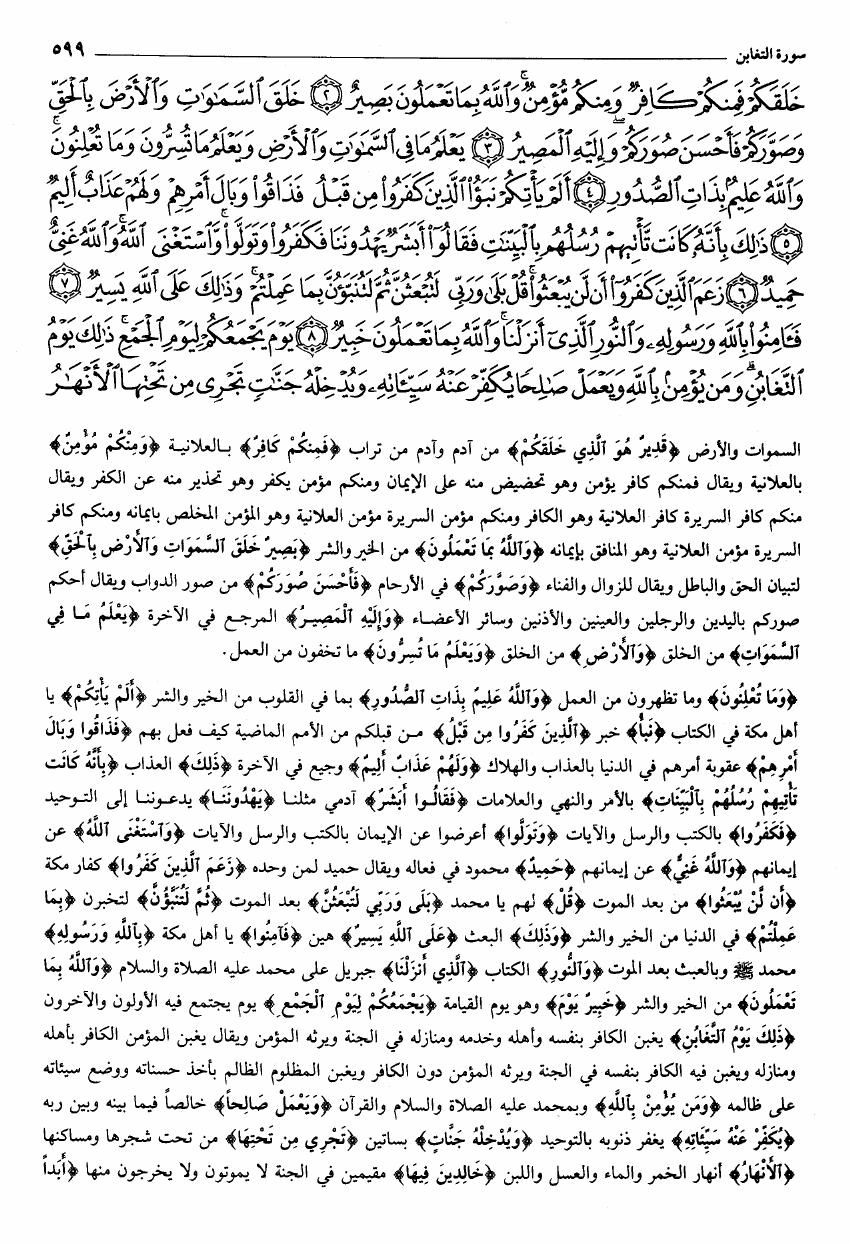 سورة التغابن ٥٩٩
خَلَقَكُمْ فَمِنكُمْ كَافِرٌ وَمِنكُم مُّؤْمِنٌ وَٱللَّهُ بِمَا تَعْمَلُونَ بَصِيرٌ ٢ خَلَقَ ٱلسَّمَٰوَٰتِ وَٱلْأَرْضَ بِٱلْحَقِّ
وَصَوَّرَكُمْ فَأَحْسَنَ صُوَرَكُمْ وَإِلَيْهِ ٱلْمَصِيرُ ٣ يَعْلَمُ مَا فِي ٱلسَّمَٰوَٰتِ وَٱلْأَرْضِ وَيَعْلَمُ مَا تُسِرُّونَ وَمَا تُعْلِنُونَ
وَٱللَّهُ عَلِيمٌۢ بِذَاتِ ٱلصُّدُورِ ٤ أَلَمْ يَأْتِكُمْ نَبَؤُا۟ ٱلَّذِينَ كَفَرُوا۟ مِن قَبْلُ فَذَاقُوا۟ وَبَالَ أَمْرِهِمْ وَلَهُمْ عَذَابٌ أَلِيمٌ
٥ ذَٰلِكَ بِأَنَّهُۥ كَانَت تَّأْتِيهِمْ رُسُلُهُم بِٱلْبَيِّنَٰتِ فَقَالُوٓا۟ أَبَشَرٌ يَهْدُونَنَا فَكَفَرُوا۟ وَتَوَلَّوا۟ وَّٱسْتَغْنَى ٱللَّهُ وَٱللَّهُ غَنِىٌّ
حَمِيدٌ ٦ زَعَمَ ٱلَّذِينَ كَفَرُوٓا۟ أَن لَّن يُبْعَثُوا۟ قُلْ بَلَىٰ وَرَبِّى لَتُبْعَثُنَّ ثُمَّ لَتُنَبَّؤُنَّ بِمَا عَمِلْتُمْ وَذَٰلِكَ عَلَى ٱللَّهِ يَسِيرٌ ٧
فَـَٔامِنُوا۟ بِٱللَّهِ وَرَسُولِهِۦ وَٱلنُّورِ ٱلَّذِىٓ أَنزَلْنَا وَٱللَّهُ بِمَا تَعْمَلُونَ خَبِيرٌ ٨ يَوْمَ يَجْمَعُكُمْ لِيَوْمِ ٱلْجَمْعِ ذَٰلِكَ يَوْمُ
ٱلتَّغَابُنِ وَمَن يُؤْمِنۢ بِٱللَّهِ وَيَعْمَلْ صَٰلِحًا يُكَفِّرْ عَنْهُ سَيِّـَٔاتِهِۦ وَيُدْخِلْهُ جَنَّٰتٍ تَجْرِى مِن تَحْتِهَا ٱلْأَنْهَٰرُ
السموات والأرض ﴿قَدِيرٌ هُوَ ٱلَّذِي خَلَقَكُمْ﴾ من آدم وآدم من تراب ﴿فَمِنكُمْ كَافِرٌ﴾ بالعلانية ﴿وَمِنْكُمْ مُؤْمِنٌ﴾
بالعلانية ويقال فمنكم كافر يؤمن وهو تحضيض منه على الإيمان ومنكم مؤمن يكفر وهو تحذير منه عن الكفر ويقال
منكم كافر السريرة كافر العلانية وهو الكافر ومنكم مؤمن السريرة مؤمن العلانية وهو المؤمن المخلص بايمانه ومنكم كافر
السريرة مؤمن العلانية وهو المنافق بإيمانه ﴿وَٱللَّهُ بِمَا تَعْمَلُونَ﴾ من الخير والشر ﴿بَصِيرٌ خَلَقَ السَّمَوَاتِ وَٱلأَرْضَ بِٱلْحَقِّ﴾
لتبيان الحق والباطل ويقال للزوال والفناء ﴿وَصَوَّرَكُمْ﴾ في الأرحام ﴿فَأَحْسَنَ صُوَرَكُمْ﴾ من صور الدواب ويقال أحكم
صوركم باليدين والرجلين والعينين والأذنين وسائر الأعضاء ﴿وَإِلَيْهِ ٱلْمَصِيرُ﴾ المرجع في الآخرة ﴿يَعْلَمُ مَا فِي
ٱلسَّمَوَاتِ﴾ من الخلق ﴿وَٱلأَرْضِ﴾ من الخلق ﴿وَيَعْلَمُ مَا تُسِرُّونَ﴾ ما تخفون من العمل.
﴿وَمَا تُعْلِنُونَ﴾ وما تظهرون من العمل ﴿وَٱللَّهُ عَلِيمٌ بِذَاتِ ٱلصُّدُورِ﴾ بما في القلوب من الخير والشر ﴿أَلَمْ يَأْتِكُمْ﴾ يا
أهل مكة في الكتاب ﴿نَبَأُ﴾ خبر ﴿ٱلَّذِينَ كَفَرُوا مِن قَبْلُ﴾ من قبلكم من الأمم الماضية كيف فعل بهم ﴿فَذَاقُوا وَبَالَ
أَمْرِهِمْ﴾ عقوبة أمرهم في الدنيا بالعذاب والهلاك ﴿وَلَهُمْ عَذَابٌ أَلِيمٌ﴾ وجيع في الآخرة ﴿ذَلِكَ﴾ العذاب ﴿بِأَنَّهُ كَانَت
تَأْتِيهِمْ رُسُلُهُمْ بِٱلْبَيِّنَاتِ﴾ بالأمر والنهي والعلامات ﴿فَقَالُوا أَبَشَرٌ﴾ آدمي مثلنا ﴿يَهْدُونَنَا﴾ يدعوننا إلى التوحيد
﴿فَكَفَرُوا﴾ بالكتب والرسل والآيات ﴿وَتَوَلَّوا﴾ أعرضوا عن الإيمان بالكتب والرسل والآيات ﴿وَٱسْتَغْنَى ٱللَّهُ﴾ عن
إيمانهم ﴿وَٱللَّهُ غَنِيٌّ﴾ عن إيمانهم ﴿حَمِيدٌ﴾ محمود في فعاله ويقال حميد لمن وحده ﴿زَعَمَ ٱلَّذِينَ كَفَرُوا﴾ كفار مكة
﴿أَن لَّنْ يُبْعَثُوا﴾ من بعد الموت ﴿قُلْ﴾ لهم يا محمد ﴿بَلَى وَرَبِّي لَتُبْعَثُنَّ﴾ بعد الموت ﴿ثُمَّ لَتُنَبَّؤُنَّ﴾ لتخبرن ﴿بِمَا
عَمِلْتُمْ﴾ في الدنيا من الخير والشر ﴿وَذَلِكَ﴾ البعث ﴿عَلَى ٱللَّهِ يَسِيرٌ﴾ هين ﴿فَآمِنُوا﴾ يا أهل مكة ﴿بِٱللَّهِ وَرَسُولِهِ﴾
محمد ﷺ وبالعبث بعد الموت ﴿وَٱلنُّورِ﴾ الكتاب ﴿ٱلَّذِي أَنزَلْنَا﴾ جبريل على محمد عليه الصلاة والسلام ﴿وَٱللَّهُ بِمَا
تَعْمَلُونَ﴾ من الخير والشر ﴿خَبِيرٌ يَوْمَ﴾ وهو يوم القيامة ﴿يَجْمَعُكُمْ لِيَوْمِ ٱلْجَمْعِ﴾ يوم يجتمع فيه الأولون والآخرون
﴿ذَلِكَ يَوْمُ ٱلتَّغَابُنِ﴾ يغبن الكافر بنفسه وأهله وخدمه ومنازله في الجنة ويرثه المؤمن ويقال يغبن المؤمن الكافر بأهله
ومنازله ويغبن فيه الكافر بنفسه في الجنة ويرثه المؤمن دون الكافر ويغبن المظلوم الظالم بأخذ حسناته ووضع سيئاته
على ظالمه ﴿وَمَن يُؤْمِنْ بِٱللَّهِ﴾ وبمحمد عليه الصلاة والسلام والقرآن ﴿وَيَعْمَلْ صَالِحاً﴾ خالصاً فيما بينه وبين ربه
﴿يُكَفِّرْ عَنْهُ سَيِّئَاتِهِ﴾ يغفر ذنوبه بالتوحيد ﴿وَيُدْخِلْهُ جَنَّاتٍ﴾ بساتين ﴿تَجْرِي مِن تَحْتِهَا﴾ من تحت شجرها ومساكنها
﴿ٱلأَنْهَارُ﴾ أنهار الخمر والماء والعسل واللبن ﴿خَالِدِينَ فِيهَا﴾ مقيمين في الجنة لا يموتون ولا يخرجون منها ﴿أَبَداً